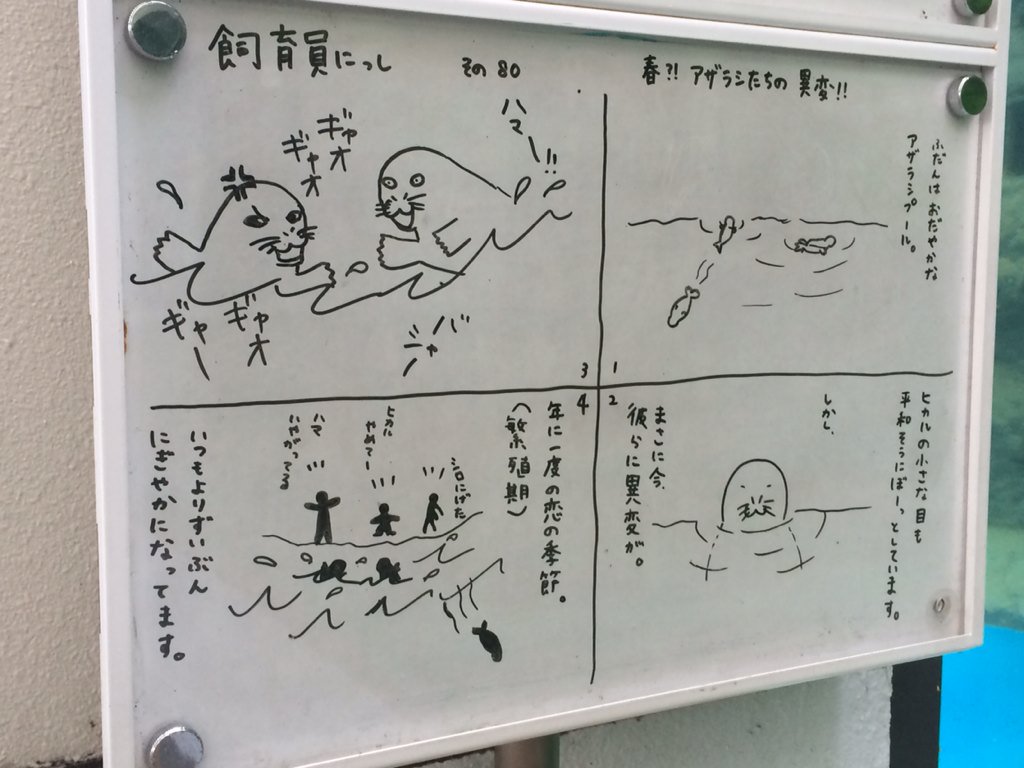 飼育員にっし
その80
春?! アザラシたちの異変!!
ふだんはおだやかな
アザラシプール。
1
ヒカルの小さな目も
平和そうにぼーっとしています。
しかし、
まさに今、
彼らに異変が。
2
ハマー!!
ギャオ
ギャオ
ギャオ
ギャー
バシャ
3
4
年に一度の恋の季節。
(繁殖期)
シロにげた
ヒカル
やめてー
ハマ
いやがってる
いつもよりずいぶん
にぎやかになってます。